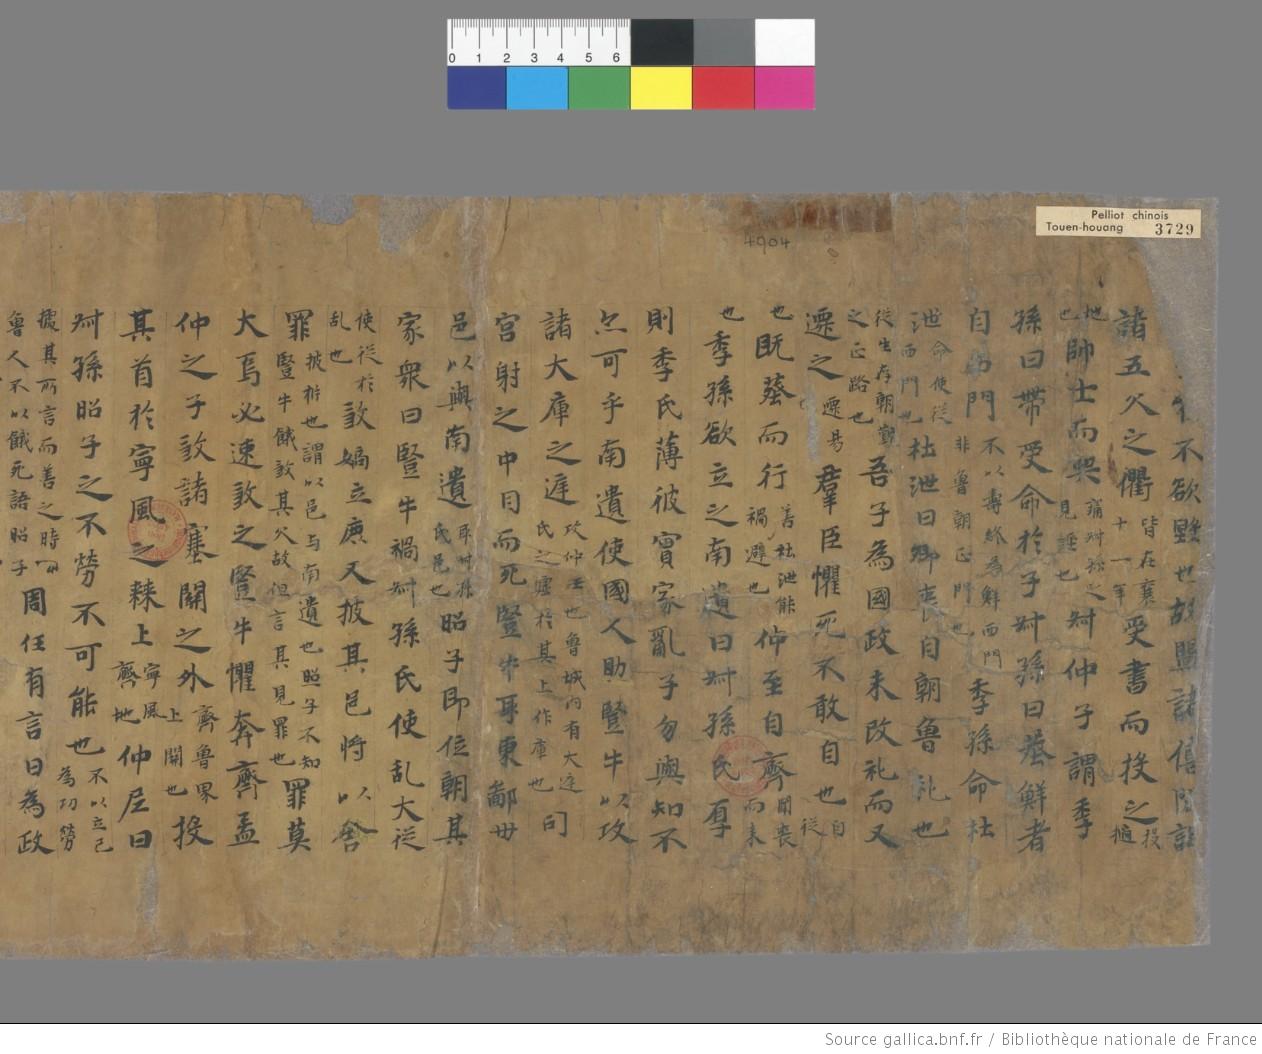 不欲毀也故盟諸僖閎詛
諸五父之衢皆在襄十一年受書而投之投擿
地也帥士而哭痛叔孫之見誣也叔仲子謂季
孫曰帶受命於子叔孫曰葬鮮者
自西門不以壽終為鮮西門非魯朝正門也季孫命杜
泄命使従西門也杜泄曰卿喪自朝魯礼也
従生存朝覲之正路也吾子為國政未改礼而又
遷之遷易羣臣懼死不敢自也自従
也既葬而行善杜泄能禍避也仲至自齊聞喪而来
也季孫欲立之南遺曰叔孫氏厚
則季氏薄彼實家亂子勿與知不
亦可乎南遺使國人助豎牛以攻
諸大庫之迋攻仲壬也魯城内有大迋氏之虚於其上作庫也司
宮射之中目而死豎牛取東鄙卅
邑以與南遺取叔孫氏邑也昭子即位朝其
家衆曰豎牛禍叔孫氏使乱大従
使従於乱也敎嫡立庶又披其邑將以舍
罪披析也謂以邑与南遺也照子不知豎牛餓敎其父故但言其見罪也罪莫
大焉必速敎之豎牛懼奔齊孟
仲之子敎諸塞關之外齊魯界上關也投
其首於寧風之棘上寧風齊地也仲尼曰
叔孫昭子之不勞不可能也不以立己為功勞
據其所言而善之時魯人不以餓死語昭子周任有言曰為政
Pelliot chinois
Touen-houang 3729
4904
0 1 2 3 4 5 6
Source gallica.bnf.fr / Bibliothèque nationale de France